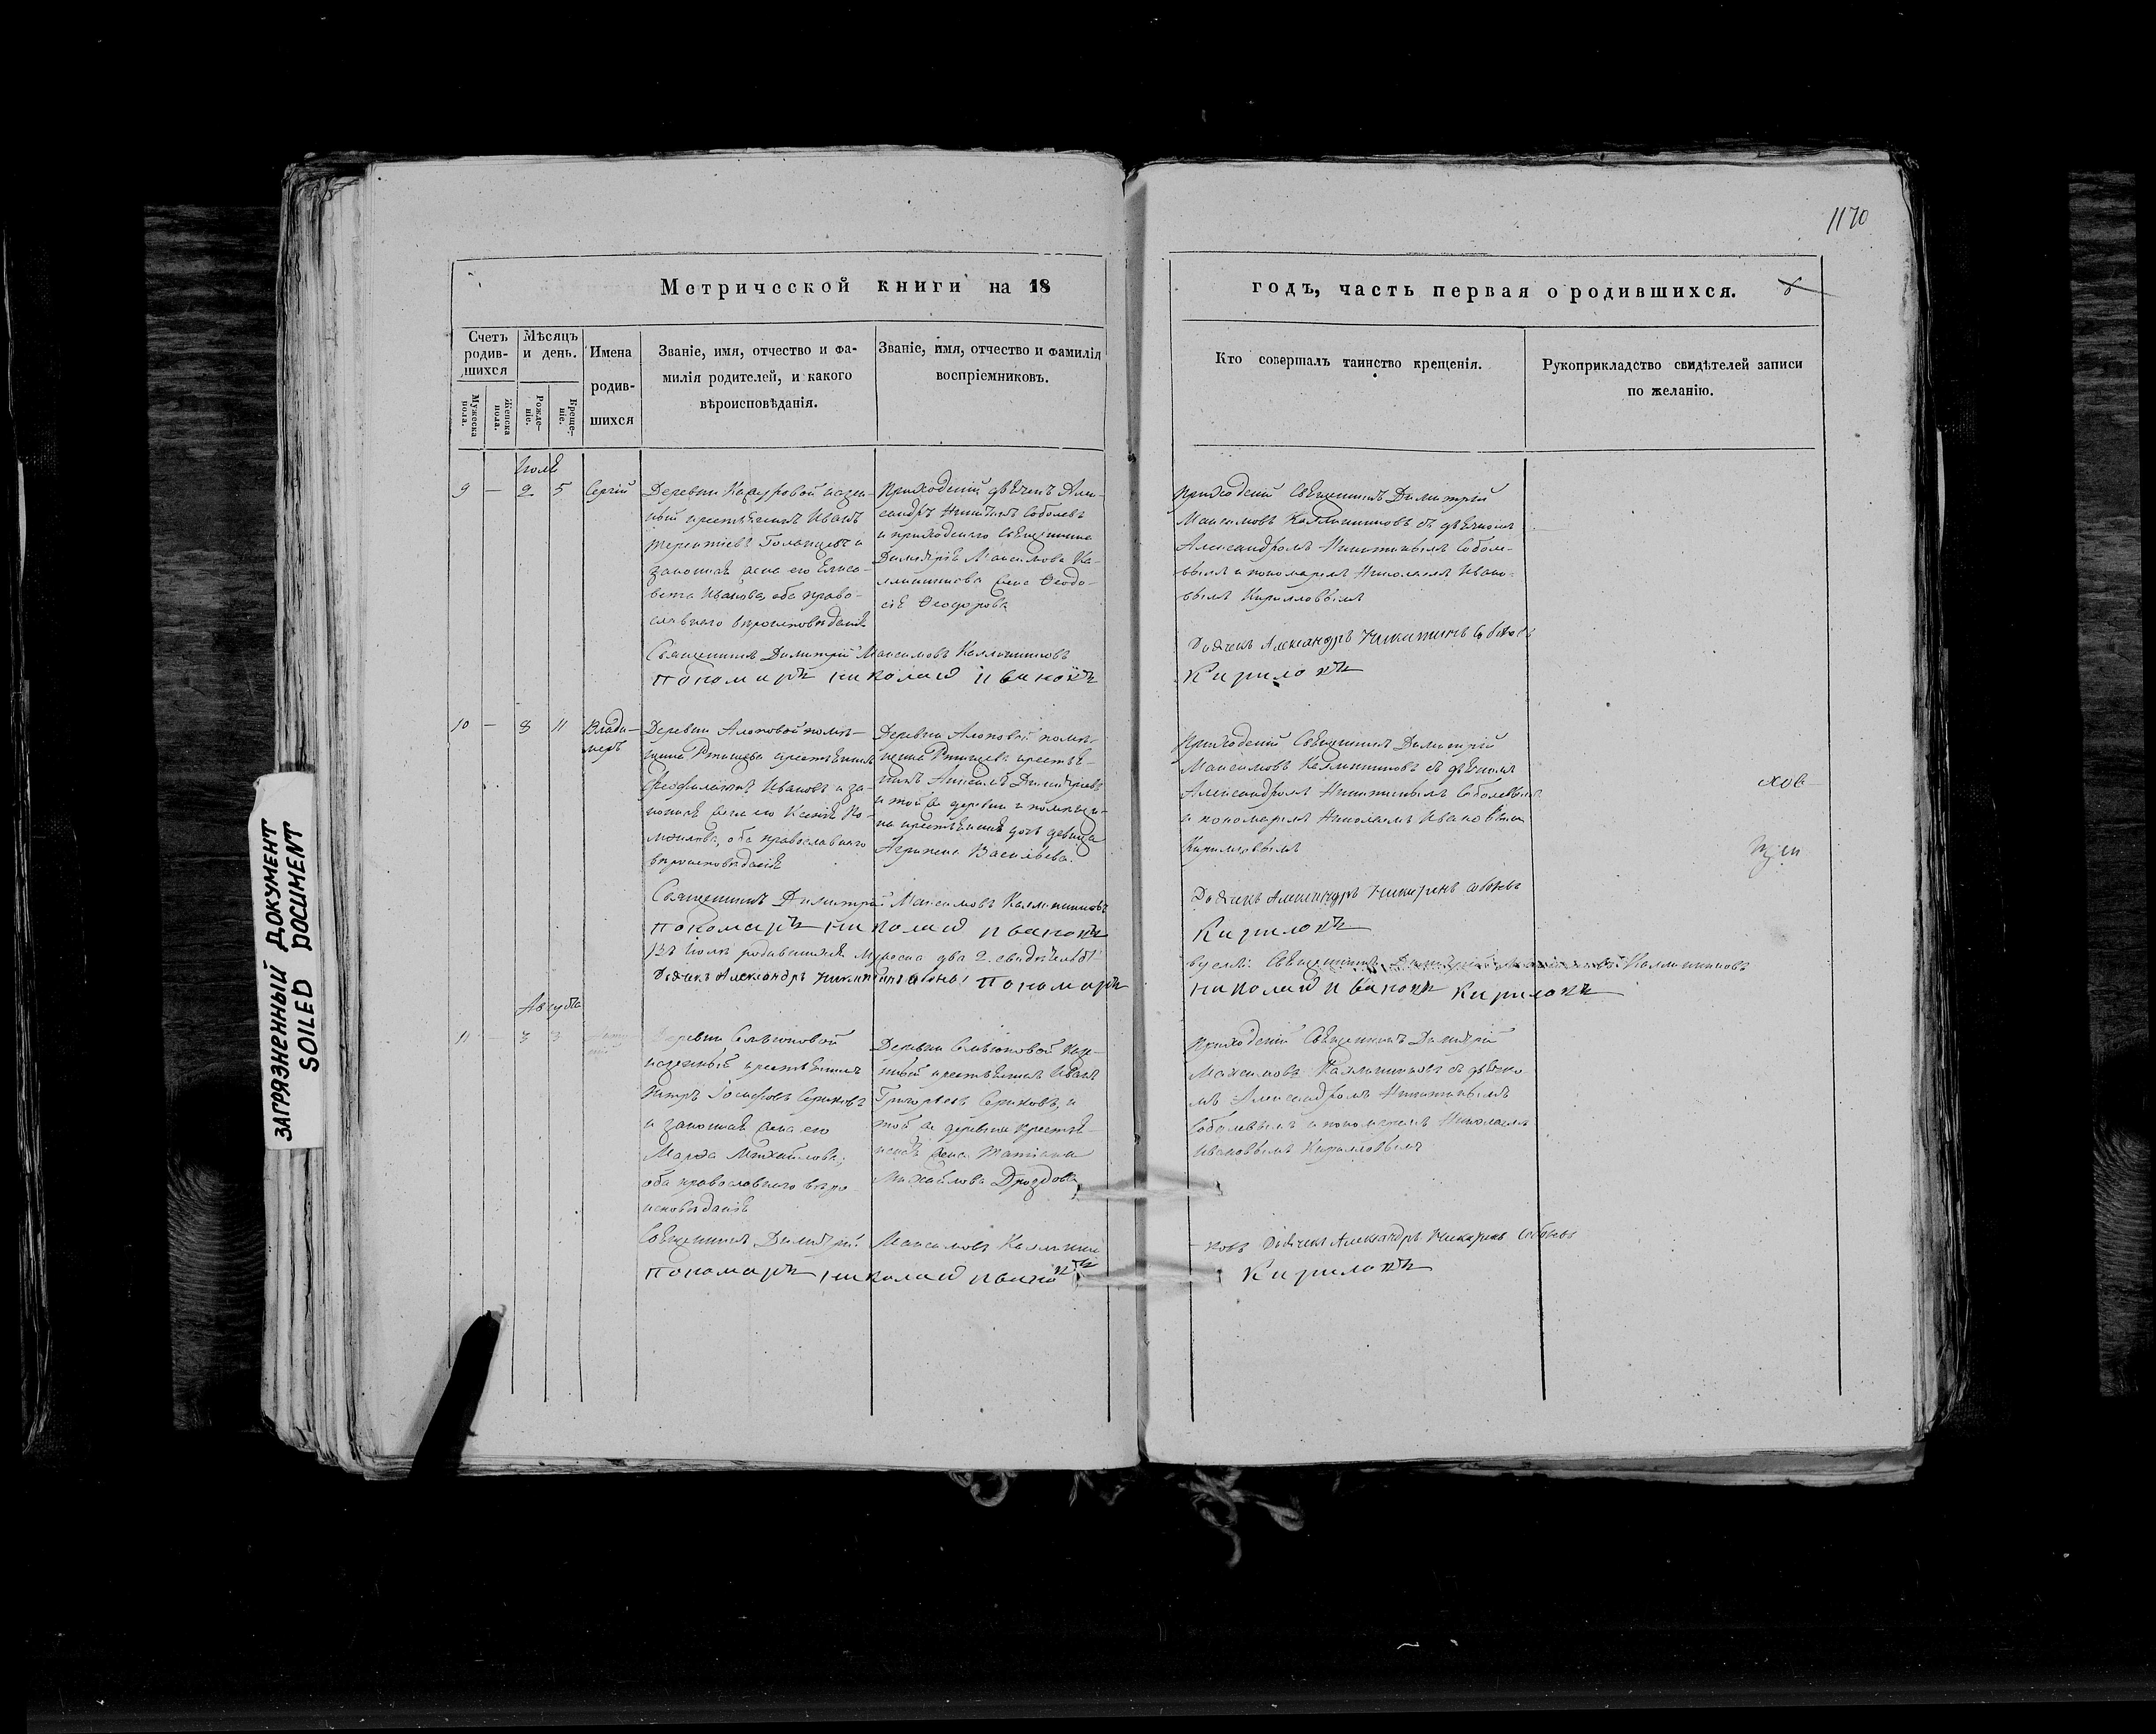 1170
Метрической книги на 18
годъ, часть первая о родившихся.
Счетъ родив-шихся
Мужеска пола.
Женска пола.
Мѣсяцъ и день.
Рожде-ніе.
Креще-ніе.
Имена родив-шихся
Званіе, имя, отчество и фа-
милія родителей, и какого
вѣроисповѣданія.
Званіе, имя, отчество и фамилія
воспріемниковъ.
Кто совершалъ таинство крещенія.
Рукоприкладство свидѣтелей записи
по желанію.
Іюля
9 — 2 5 Сергій
Деревни казен-
ный крестьянинъ Иванъ
Терентіевъ и
законная жена его Елиса-
вета Иванова, оба право-
славнаго вѣроисповѣданія
Приходскій дьячекъ Алек-
сандръ Никитинъ Соболевъ
и приходскаго священника
Димитрія Максимова Ка-
линникова жена Ѳеодо-
сія Ѳеодорова
Приходскій Священникъ Димитрій
Максимовъ Калинниковъ съ дьячкомъ
Александромъ Никитинымъ Соболе-
вымъ и пономаремъ Николаемъ Ивано-
вымъ Кирилловымъ
Священникъ Димитрій Максимовъ Калинниковъ
Дьячекъ Александръ Никитинъ Соболевъ
пономарь николай ивановъ
Кириловъ
10 — 8 11 Влади-
меръ
Деревни помѣ-
щика Ртищева крестьянинъ
Ѳеофилактъ Ивановъ и за-
конная жена его Ксенія
оба православнаго
вѣроисповѣданія
Деревни помѣ-
щика Ртищева крестья-
нинъ Димитріевъ
и той же деревни и помѣщи-
ка крестьянина дочь девица
Агрипена Васильева.
Приходскій Священникъ Димитрій
Максимовъ Калинниковъ съ дьячкомъ
Александромъ Никитинымъ Соболевымъ
и пономаремъ Николаемъ Ивановымъ
Кирилловымъ
Священникъ Димитрій Максимовъ Калинниковъ
Дьячекъ Александръ Никитинъ Соболевъ
пономарь николай ивановъ
Кириловъ
Въ Іюлѣ родившихся мужеска два 2. свидѣтельст-
вуемъ: Священникъ Димитрій Калинниковъ
Дьячекъ Александръ Никитинъ Соболевъ пономарь
николай ивановъ Кириловъ
Августа
11 3 3
Деревни
казенный крестьянинъ
Петръ Іосифовъ
и законная жена его
Марѳа Михайлова,
оба православнаго вѣро
исповѣданія
Деревни казен-
ный крестьянинъ Иванъ
Григорьевъ и
той же деревни крестья-
жена Татіана
Михайлова Дроздова
Приходскій Священникъ Димитрій
Максимовъ Калинниковъ съ дьячко-
мъ Александромъ Никитинымъ
Соболевымъ и пономаремъ Николаемъ
Ивановымъ Кирилловымъ
Священникъ Димитрій Максимовъ Калинни
ковъ Дьячекъ Александръ Никитинъ Соболевъ
пономарь николай ивановъ
Кириловъ
ЗАГРЯЗНЕННЫЙ ДОКУМЕНТ
SOILED DOCUMENT